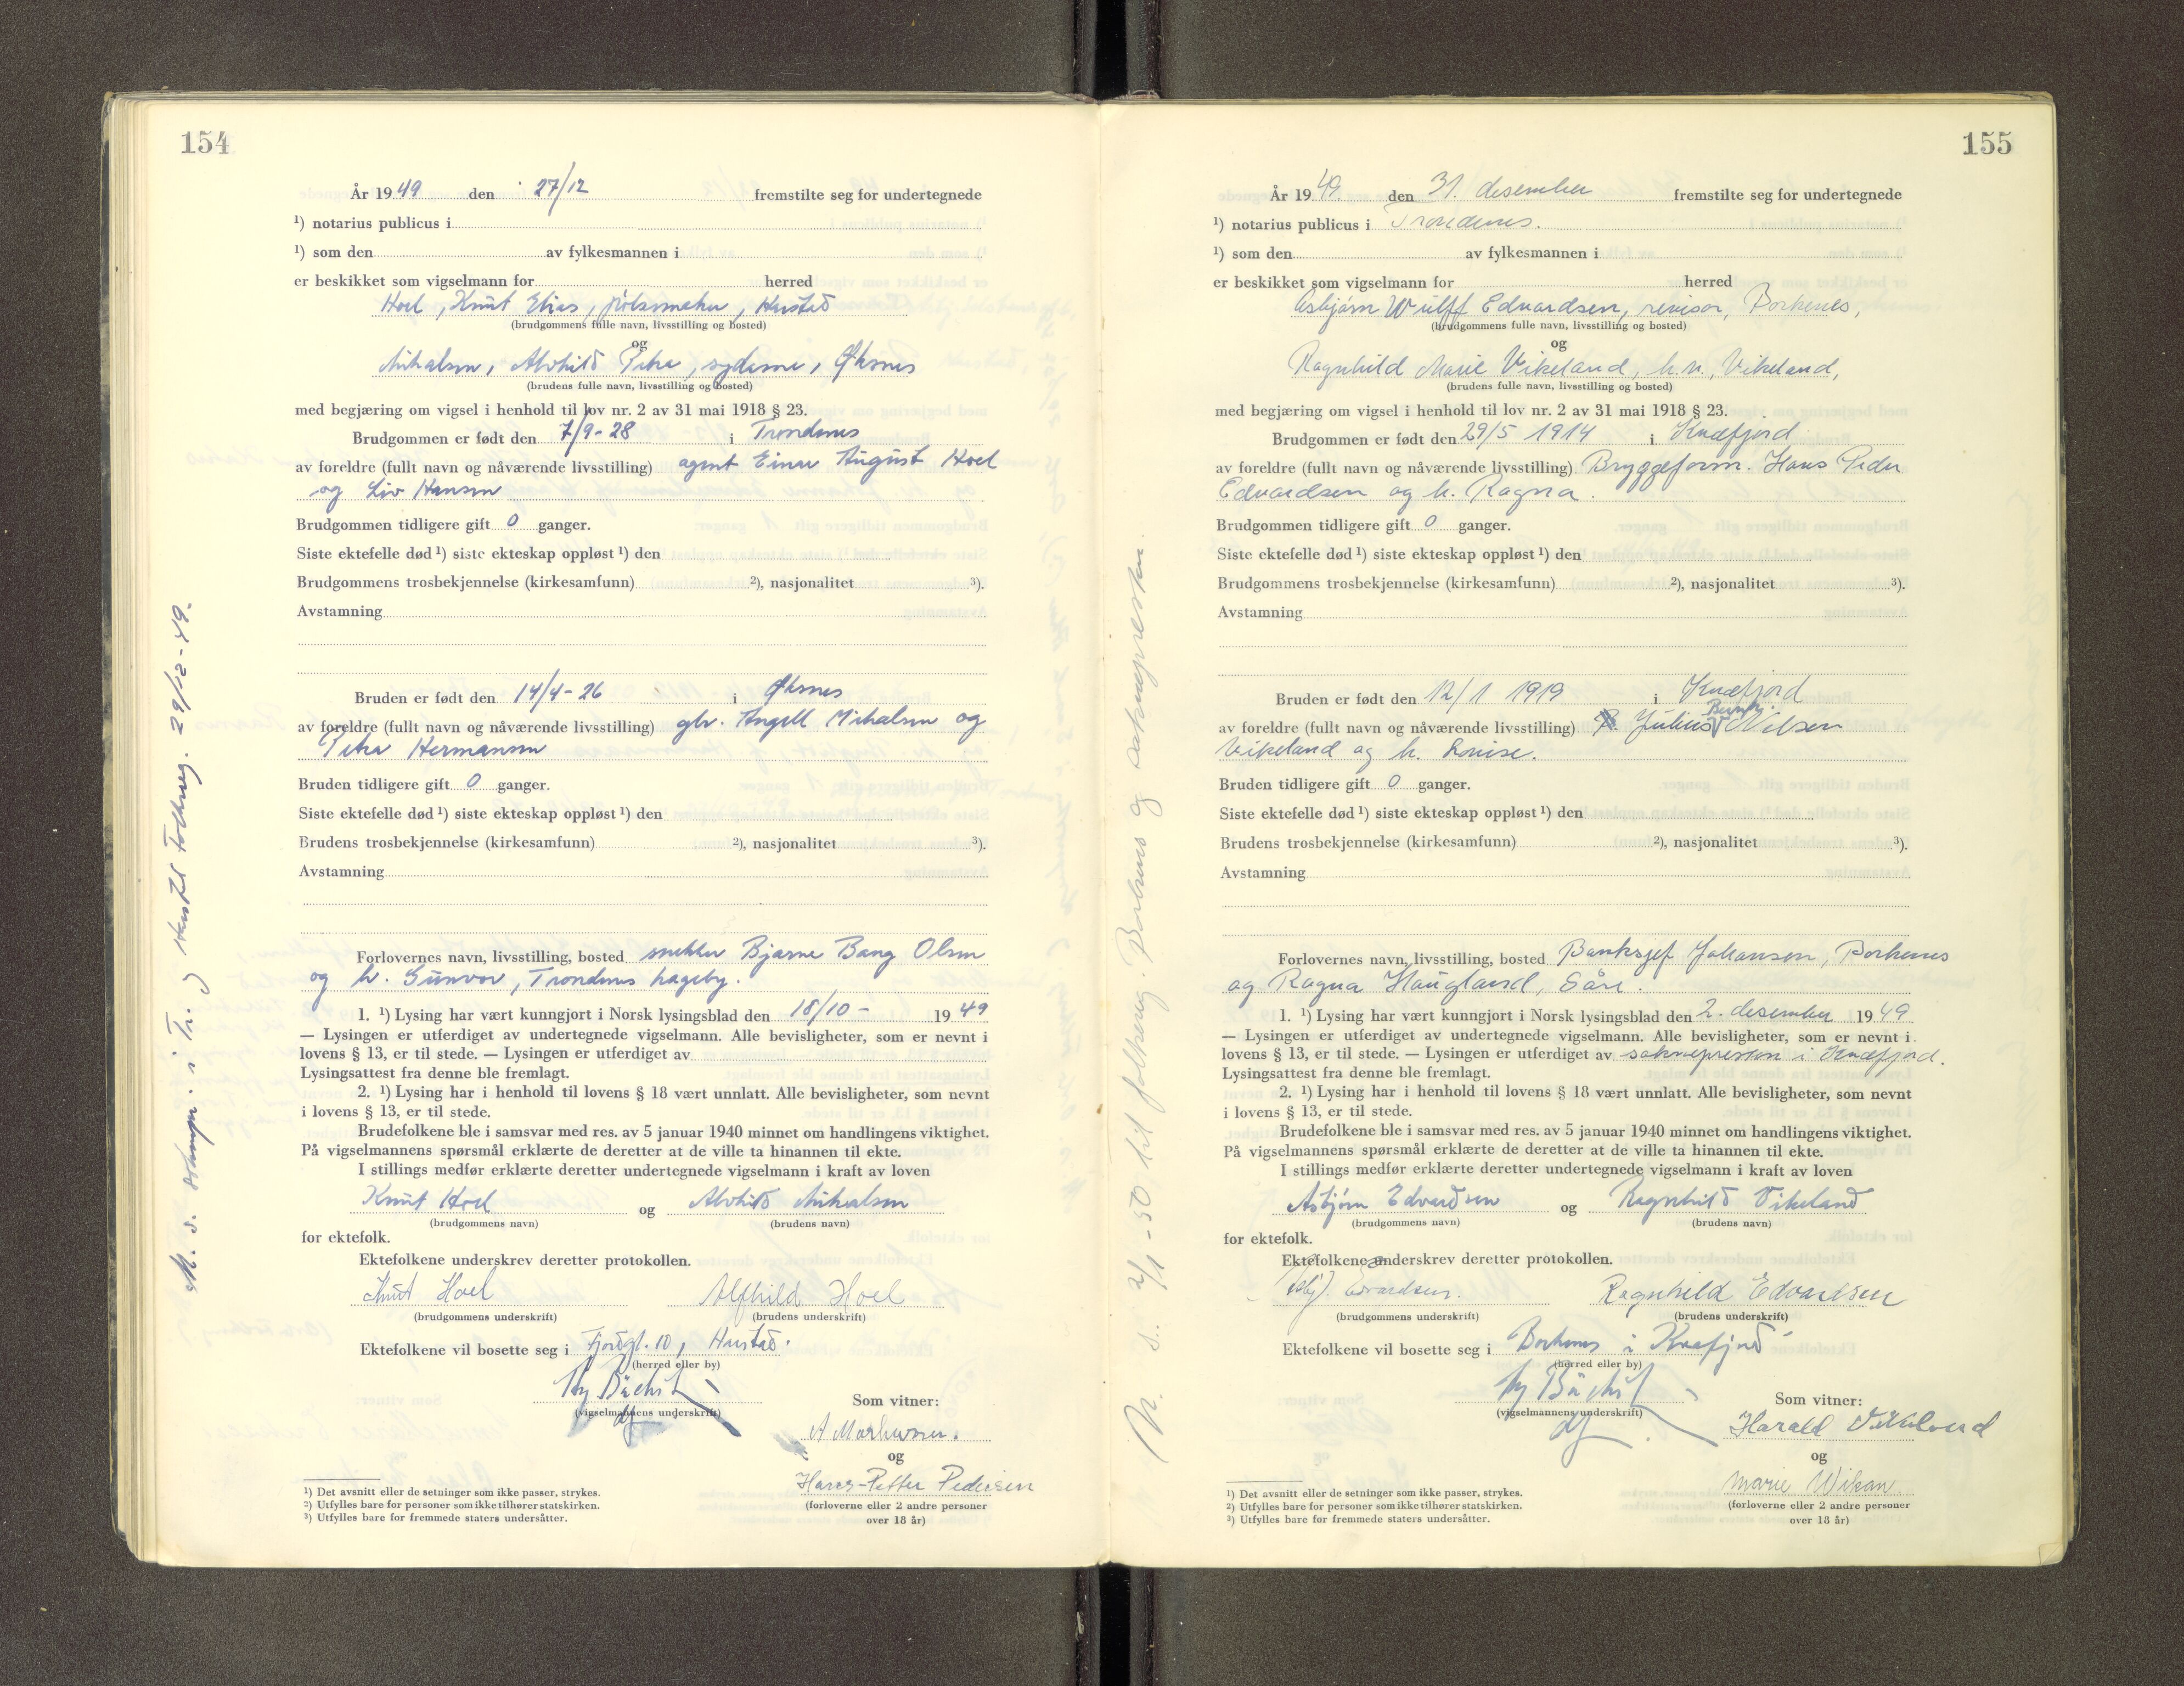 154
År 1949 den 27/12 fremstilte seg for undertegnede
¹) notarius publicus i
¹) som den av fylkesmannen i
er beskikket som vigselmann for herred
Hoel, Knut Elias, pølsemaker, Harstad
(brudgommens fulle navn, livsstilling og bosted)
og
Mikalsen, Alvhild Petra, syderske, Øksnes
(brudens fulle navn, livsstilling og bosted)
med begjæring om vigsel i henhold til lov nr. 2 av 31 mai 1918 § 23.
Brudgommen er født den 7/9-28 i Trondenes
av foreldre (fullt navn og nåværende livsstilling) agent Einar August Hoel
og Liv Hansen
Brudgommen tidligere gift 0 ganger.
Siste ektefelle død ¹) siste ekteskap oppløst ¹) den
Brudgommens trosbekjennelse (kirkesamfunn) ²), nasjonalitet ³).
Avstamning
Bruden er født den 14/4-26 i Øksnes
av foreldre (fullt navn og nåværende livsstilling) gbr. Angell Mikalsen og
Petra Hermansen
Bruden tidligere gift 0 ganger.
Siste ektefelle død ¹) siste ekteskap oppløst ¹) den
Brudens trosbekjennelse (kirkesamfunn) ²), nasjonalitet ³).
Avstamning
Forlovernes navn, livsstilling, bosted snekker Bjarne Bang Olsen
og h. Gunvor, Trondenes hageby.
1. ¹) Lysing har vært kunngjort i Norsk lysingsblad den 18/10- 1949
— Lysingen er utferdiget av undertegnede vigselmann. Alle bevisligheter, som er nevnt i
lovens § 13, er til stede. — Lysingen er utferdiget av
Lysingsattest fra denne ble fremlagt.
2. ¹) Lysing har i henhold til lovens § 18 vært unnlatt. Alle bevisligheter, som nevnt
i lovens § 13, er til stede.
Brudefolkene ble i samsvar med res. av 5 januar 1940 minnet om handlingens viktighet.
På vigselmannens spørsmål erklærte de deretter at de ville ta hinannen til ekte.
I stillings medfør erklærte deretter undertegnede vigselmann i kraft av loven
Knut Hoel og Alvhild Mikalsen
(brudgommens navn) (brudens navn)
for ektefolk.
Ektefolkene underskrev deretter protokollen.
Knut Hoel Alfhild Hoel
(brudgommens underskrift) (brudens underskrift)
Ektefolkene vil bosette seg i Fjordgt. 10, Harstad.
(herred eller by)
(vigselmannens underskrift)
Som vitner:
A Markussen.
og
Hans-Petter Pedersen
(forloverne eller 2 andre personer
over 18 år)
¹) Det avsnitt eller de setninger som ikke passer, strykes.
²) Utfylles bare for personer som ikke tilhører statskirken.
³) Utfylles bare for fremmede staters undersåtter.
M. s. soknepr. i Tr. og Harstad Folkereg. 29/12-49.
155
År 1949. den 31. desember fremstilte seg for undertegnede
¹) notarius publicus i Trondenes.
¹) som den av fylkesmannen i
er beskikket som vigselmann for herred
Asbjørn Wulff Edvardsen, revisor, Borkenes,
(brudgommens fulle navn, livsstilling og bosted)
og
Ragnhild Marie Vikeland, h.n., Vikeland,
(brudens fulle navn, livsstilling og bosted)
med begjæring om vigsel i henhold til lov nr. 2 av 31 mai 1918 § 23.
Brudgommen er født den 29/5 1914 i Kvæfjord
av foreldre (fullt navn og nåværende livsstilling) Bryggeform. Hans Peder
Edvardsen og h. Ragna.
Brudgommen tidligere gift 0 ganger.
Siste ektefelle død ¹) siste ekteskap oppløst ¹) den
Brudgommens trosbekjennelse (kirkesamfunn) ²), nasjonalitet ³).
Avstamning
Bruden er født den 12/1 1919 i Kvæfjord
av foreldre (fullt navn og nåværende livsstilling) Julius Nilsen
Vikeland og h. Louise.
Bruden tidligere gift 0 ganger.
Siste ektefelle død ¹) siste ekteskap oppløst ¹) den
Brudens trosbekjennelse (kirkesamfunn) ²), nasjonalitet ³).
Avstamning
Forlovernes navn, livsstilling, bosted Banksjef Johansen, Borkenes
og Ragna Haugland, Såre.
1. ¹) Lysing har vært kunngjort i Norsk lysingsblad den 2. desember 1949
— Lysingen er utferdiget av undertegnede vigselmann. Alle bevisligheter, som er nevnt i
lovens § 13, er til stede. — Lysingen er utferdiget av soknepresten i Kvæfjord.
Lysingsattest fra denne ble fremlagt.
2. ¹) Lysing har i henhold til lovens § 18 vært unnlatt. Alle bevisligheter, som nevnt
i lovens § 13, er til stede.
Brudefolkene ble i samsvar med res. av 5 januar 1940 minnet om handlingens viktighet.
På vigselmannens spørsmål erklærte de deretter at de ville ta hinannen til ekte.
I stillings medfør erklærte deretter undertegnede vigselmann i kraft av loven
Asbjørn Edvardsen og Ragnhild Vikeland
(brudgommens navn) (brudens navn)
for ektefolk.
Ektefolkene underskrev deretter protokollen.
Asbj. Edvardsen. Ragnhild Edvardsen
(brudgommens underskrift) (brudens underskrift)
Ektefolkene vil bosette seg i Borkenes i Kvæfjord
(herred eller by)
(vigselmannens underskrift)
Som vitner:
Harald Vikeland
og
Marie Wikan
(forloverne eller 2 andre personer
over 18 år)
¹) Det avsnitt eller de setninger som ikke passer, strykes.
²) Utfylles bare for personer som ikke tilhører statskirken.
³) Utfylles bare for fremmede staters undersåtter.
M. s. 2/1-50 til folkereg. Borkenes og soknepresten.